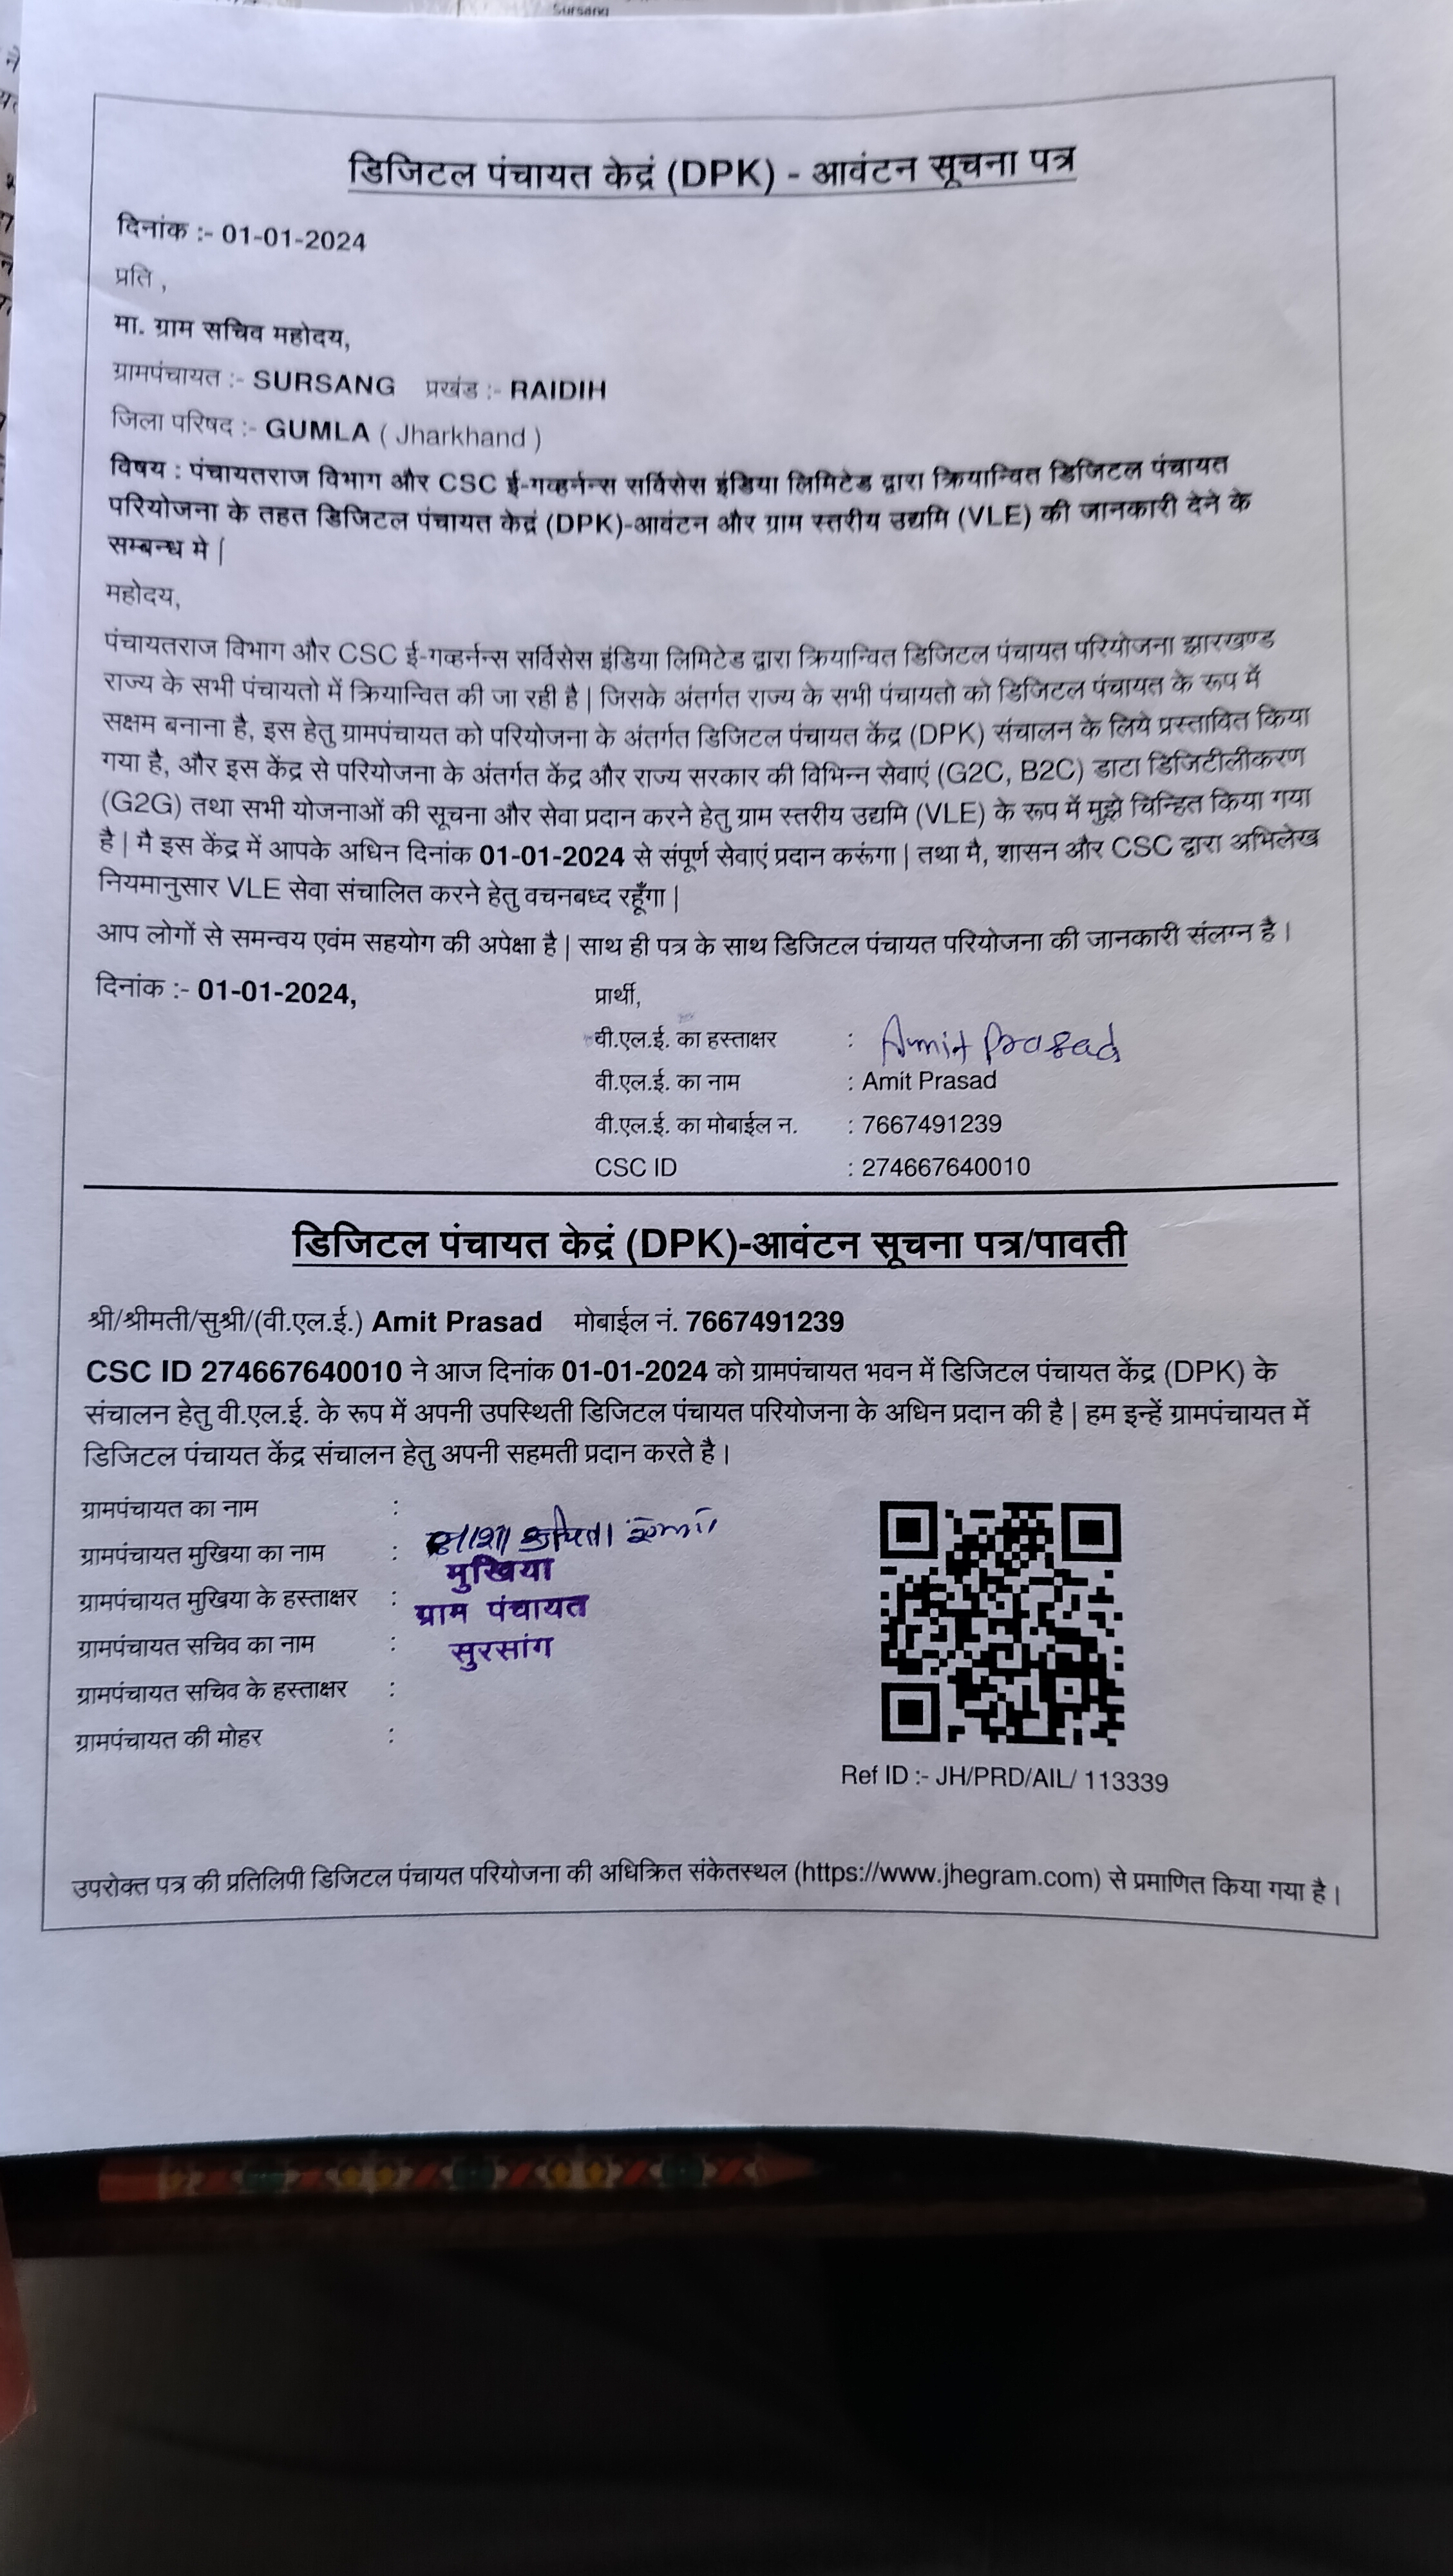 Sursang
डिजिटल पंचायत केद्रं (DPK) - आवंटन सूचना पत्र
दिनांक :- 01-01-2024
प्रति ,
मा. ग्राम सचिव महोदय,
ग्रामपंचायत :- SURSANG प्रखंड :- RAIDIH
जिला परिषद :- GUMLA ( Jharkhand )
विषय : पंचायतराज विभाग और CSC ई-गव्हर्नन्स सर्विसेस इंडिया लिमिटेड द्वारा क्रियान्वित डिजिटल पंचायत
परियोजना के तहत डिजिटल पंचायत केद्रं (DPK)-आवंटन और ग्राम स्तरीय उद्यमि (VLE) की जानकारी देने के
सम्बन्ध मे |
महोदय,
पंचायतराज विभाग और CSC ई-गव्हर्नन्स सर्विसेस इंडिया लिमिटेड द्वारा क्रियान्वित डिजिटल पंचायत परियोजना झारखण्ड
राज्य के सभी पंचायतो में क्रियान्वित की जा रही है | जिसके अंतर्गत राज्य के सभी पंचायतो को डिजिटल पंचायत के रूप में
सक्षम बनाना है, इस हेतु ग्रामपंचायत को परियोजना के अंतर्गत डिजिटल पंचायत केंद्र (DPK) संचालन के लिये प्रस्तावित किया
गया है, और इस केंद्र से परियोजना के अंतर्गत केंद्र और राज्य सरकार की विभिन्न सेवाएं (G2C, B2C) डाटा डिजिटीलीकरण
(G2G) तथा सभी योजनाओं की सूचना और सेवा प्रदान करने हेतु ग्राम स्तरीय उद्यमि (VLE) के रूप में मुझे चिन्हित किया गया
है | मै इस केंद्र में आपके अधिन दिनांक 01-01-2024 से संपूर्ण सेवाएं प्रदान करूंगा | तथा मै, शासन और CSC द्वारा अभिलेख
नियमानुसार VLE सेवा संचालित करने हेतु वचनबध्द रहूँगा |
आप लोगों से समन्वय एवंम सहयोग की अपेक्षा है | साथ ही पत्र के साथ डिजिटल पंचायत परियोजना की जानकारी संलग्न है ।
दिनांक :- 01-01-2024, प्रार्थी,
वी.एल.ई. का हस्ताक्षर : Amit Prasad
वी.एल.ई. का नाम : Amit Prasad
वी.एल.ई. का मोबाईल न. : 7667491239
CSC ID : 274667640010
डिजिटल पंचायत केद्रं (DPK)-आवंटन सूचना पत्र/पावती
श्री/श्रीमती/सुश्री/(वी.एल.ई.) Amit Prasad मोबाईल नं. 7667491239
CSC ID 274667640010 ने आज दिनांक 01-01-2024 को ग्रामपंचायत भवन में डिजिटल पंचायत केंद्र (DPK) के
संचालन हेतु वी.एल.ई. के रूप में अपनी उपस्थिती डिजिटल पंचायत परियोजना के अधिन प्रदान की है | हम इन्हें ग्रामपंचायत में
डिजिटल पंचायत केंद्र संचालन हेतु अपनी सहमती प्रदान करते है ।
ग्रामपंचायत का नाम :
ग्रामपंचायत मुखिया का नाम :
मुखिया
ग्रामपंचायत मुखिया के हस्ताक्षर : ग्राम पंचायत
ग्रामपंचायत सचिव का नाम : सुरसांग
ग्रामपंचायत सचिव के हस्ताक्षर :
ग्रामपंचायत की मोहर :
Ref ID :- JH/PRD/AIL/ 113339
उपरोक्त पत्र की प्रतिलिपी डिजिटल पंचायत परियोजना की अधिक्रित संकेतस्थल (https://www.jhegram.com) से प्रमाणित किया गया है ।